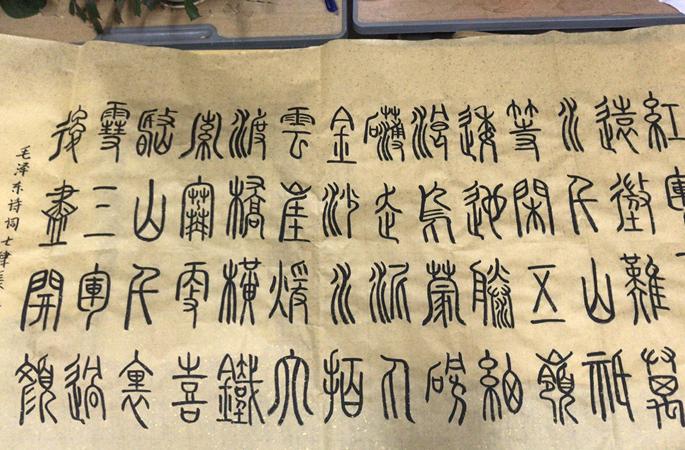 紅軍
遠徵難萬
水千山祇
等閑五嶺
逶迤騰細
浪烏蒙磅
礴走泥丸
金沙水拍
雲崖暖大
渡橋橫鐵
索寒更喜
岷山千裏
雪三軍過
後盡開顏
毛泽东诗词七律長